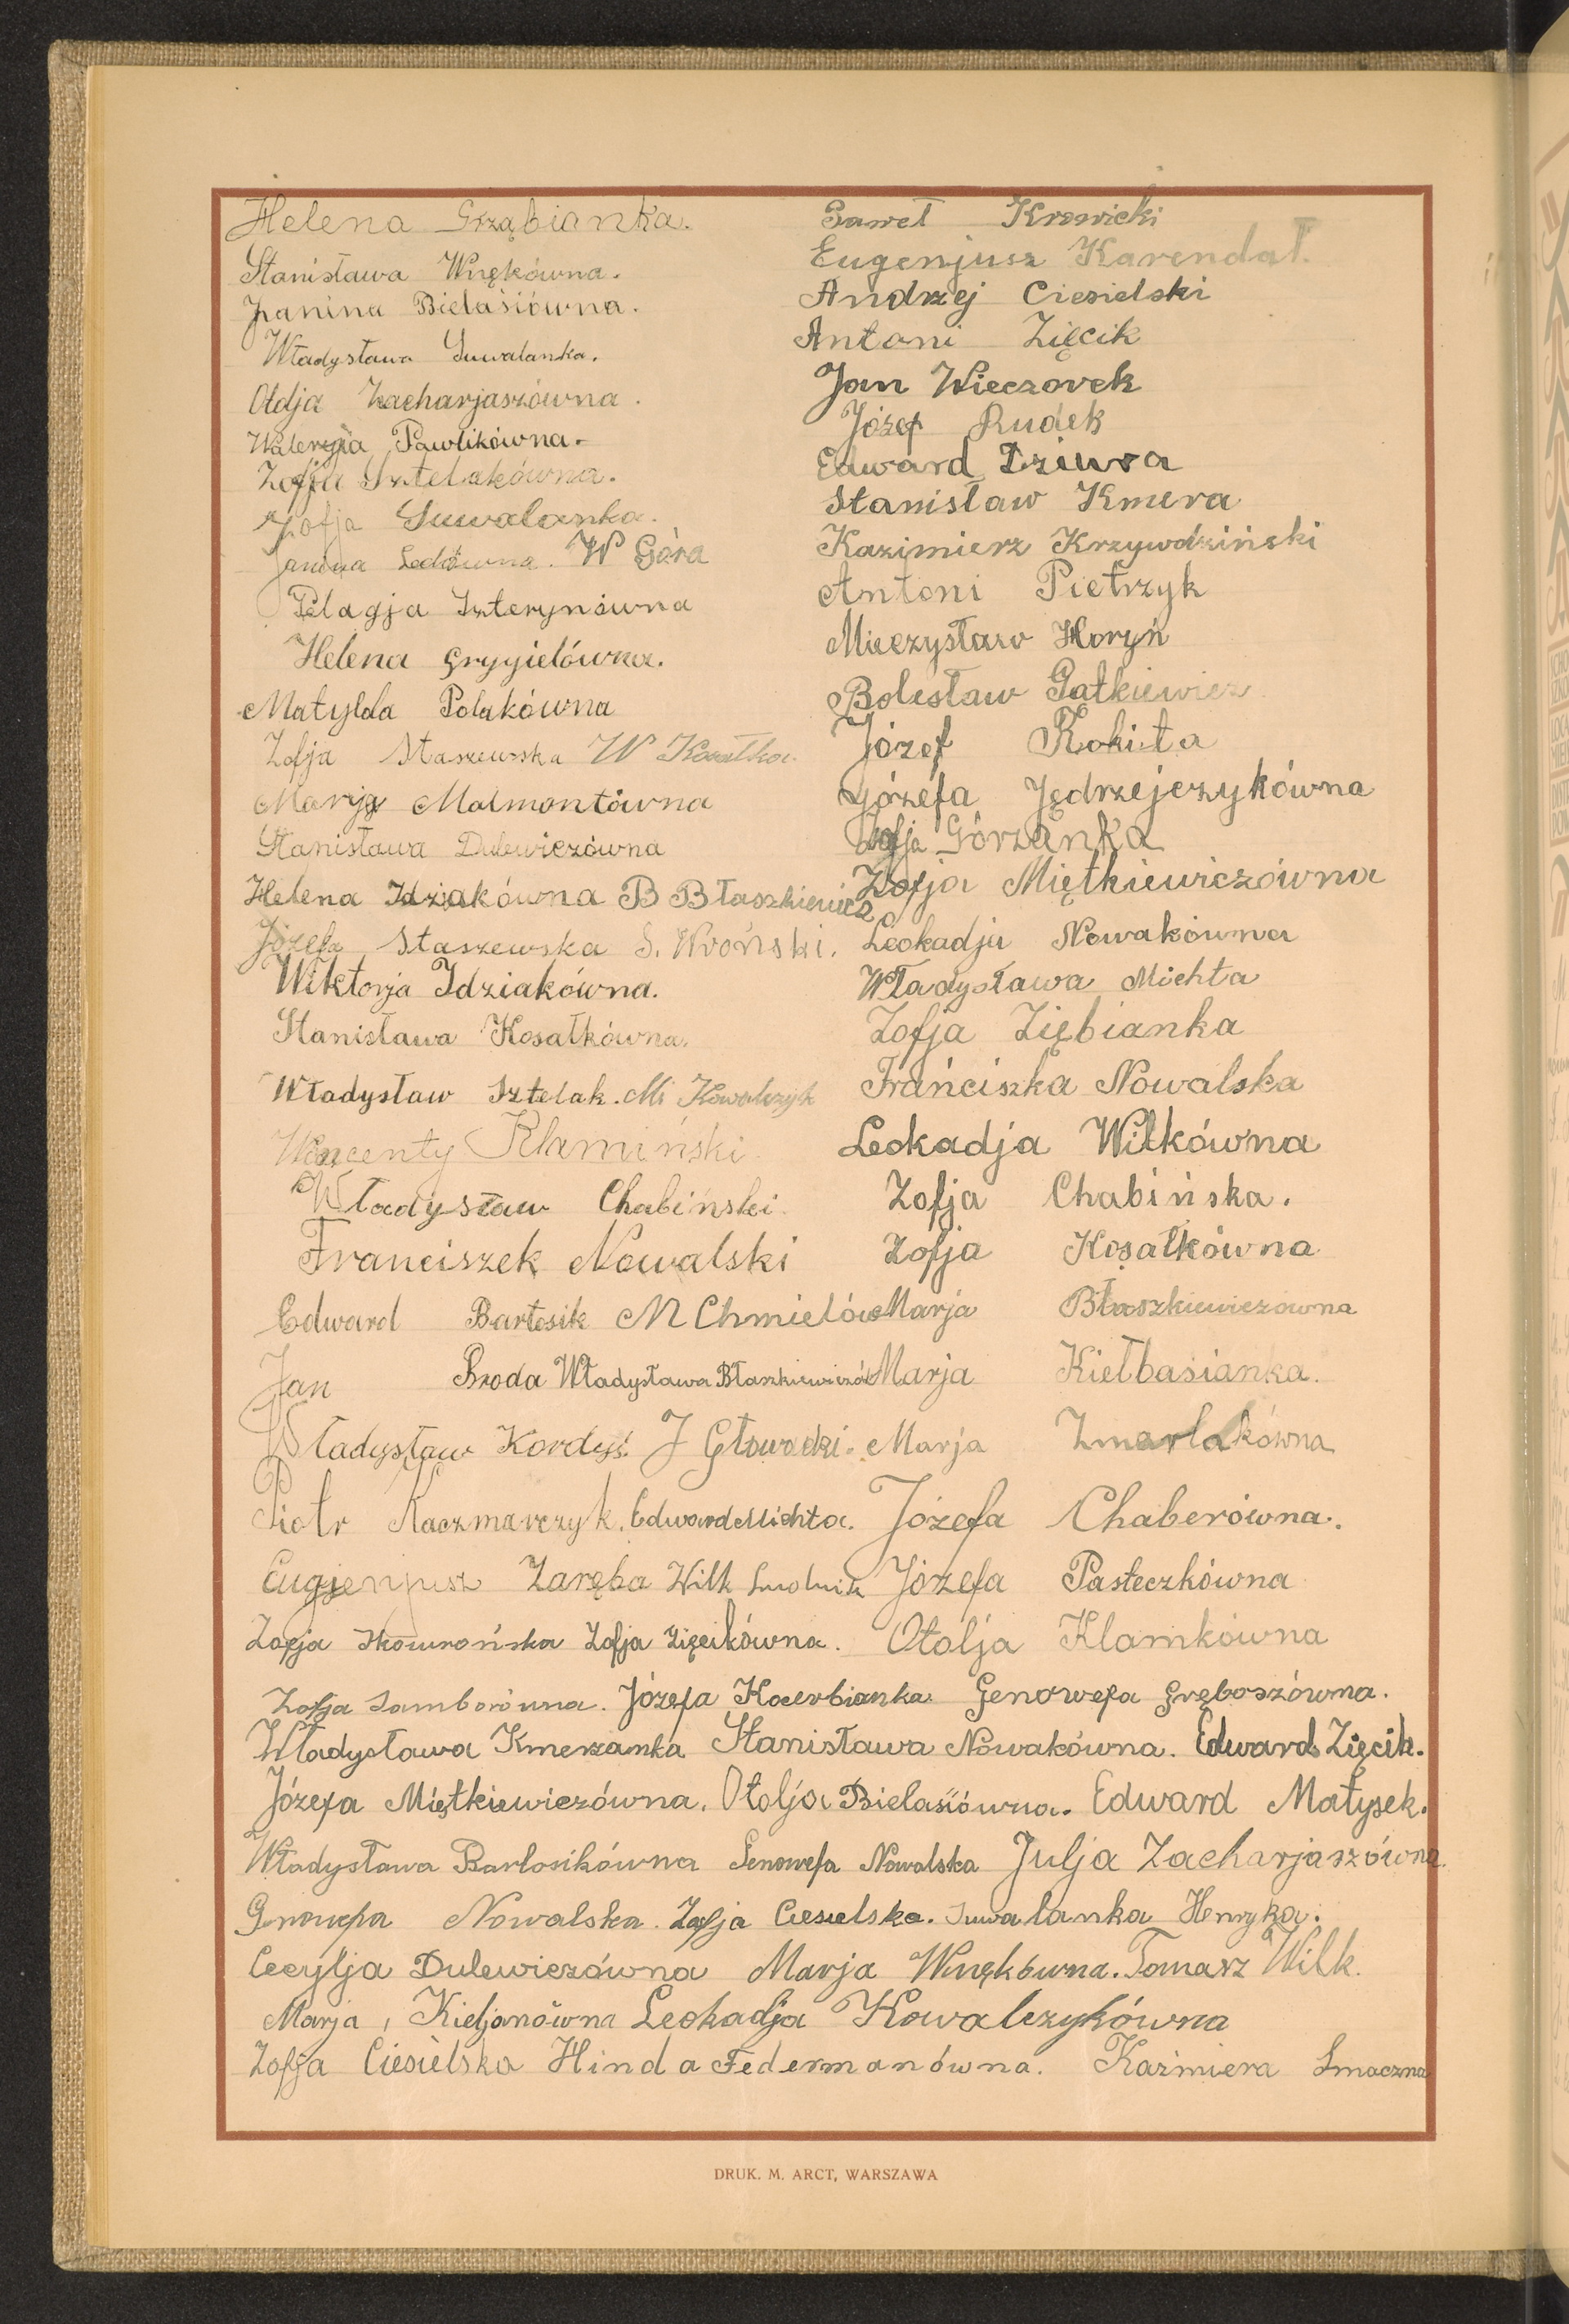 Helena Grząbianka. Paweł Krawicki
Stanisława Wnękówna. Eugenjusz Karendał.
Janina Bielasiówna. Andrzej Ciesielski
Władysława Suwalanka. Antoni Zięcik
Otolja Zacharjaszówna. Jan Wieczorek
Walerja Pawlikówna. Józef Rudek
Zofja Sztelakówna. Edward Dziura
Zofja Suwalanka. Stanisław Kmera
Janina Ledówna. W Góra Kazimierz Krzywdziński
Pelagja Szterynówna Antoni Pietrzyk
Helena Grygielówna. Mieczysław Horyń
Matylda Polakówna Bolesław Gałkiewicz
Zofja Staszewska W Kosałka. Józef Kokita
Marja Malmontówna Józefa Jędrzejczykówna
Stanisława Dulewiczówna Zofja Górzanka
Helena Idziakówna B Błaszkiewicz Zofja Miętkiewiczówna
Józefa Staszewska S. Wroński. Leokadja Nowakówna
Wiktorja Idziakówna. Władysława Michta
Stanisława Kosałkówna. Zofja Ziębianka
Władysław Sztelak. Mi Kowalczyk Frańciszka Nowalska
Wincenty Klamiński. Leokadja Wilkówna
Władysław Chabiński. Zofja Chabińska.
Franciszek Nowalski Zofja Kosałkówna
Edward Bartosik M Chmielów Marja Błaszkiewiczówna
Jan Broda Władysława Błaszkiewiczów Marja Kiełbasianka.
Władysław Kordyś. J Głowacki. Marja Zmarlakówna
Piotr Kaczmarczyk. Edward Michta. Józefa Chaberówna.
Eugjenjusz Zaręba Wilk Ludwik Józefa Pasteczkówna
Zofja Skowrońska Zofja Zięcikówna. Otolja Klamkówna
Zofja Samborówna. Józefa Kocerbianka. Genowefa Gręboszówna.
Władysława Kmerzanka Stanisława Nowakówna. Edward Zięcik.
Józefa Miętkiewiczówna. Otolja Bielasiówna. Edward Matysek.
Władysława Bartosikówna Genowefa Nowalska Julja Zacharjaszówna.
Gnowefa Nowalska. Zofja Ciesielska. Suwalanka Henryka.
Cecylja Dulewiczówna Marja Wnękówna. Tomasz Wilk.
Marja, Kieljanówna Leokadja Kowalczykówna
Zofja Ciesielska Hinda Federmanówna. Kazimiera Smaczna
DRUK. M. ARCT, WARSZAWA